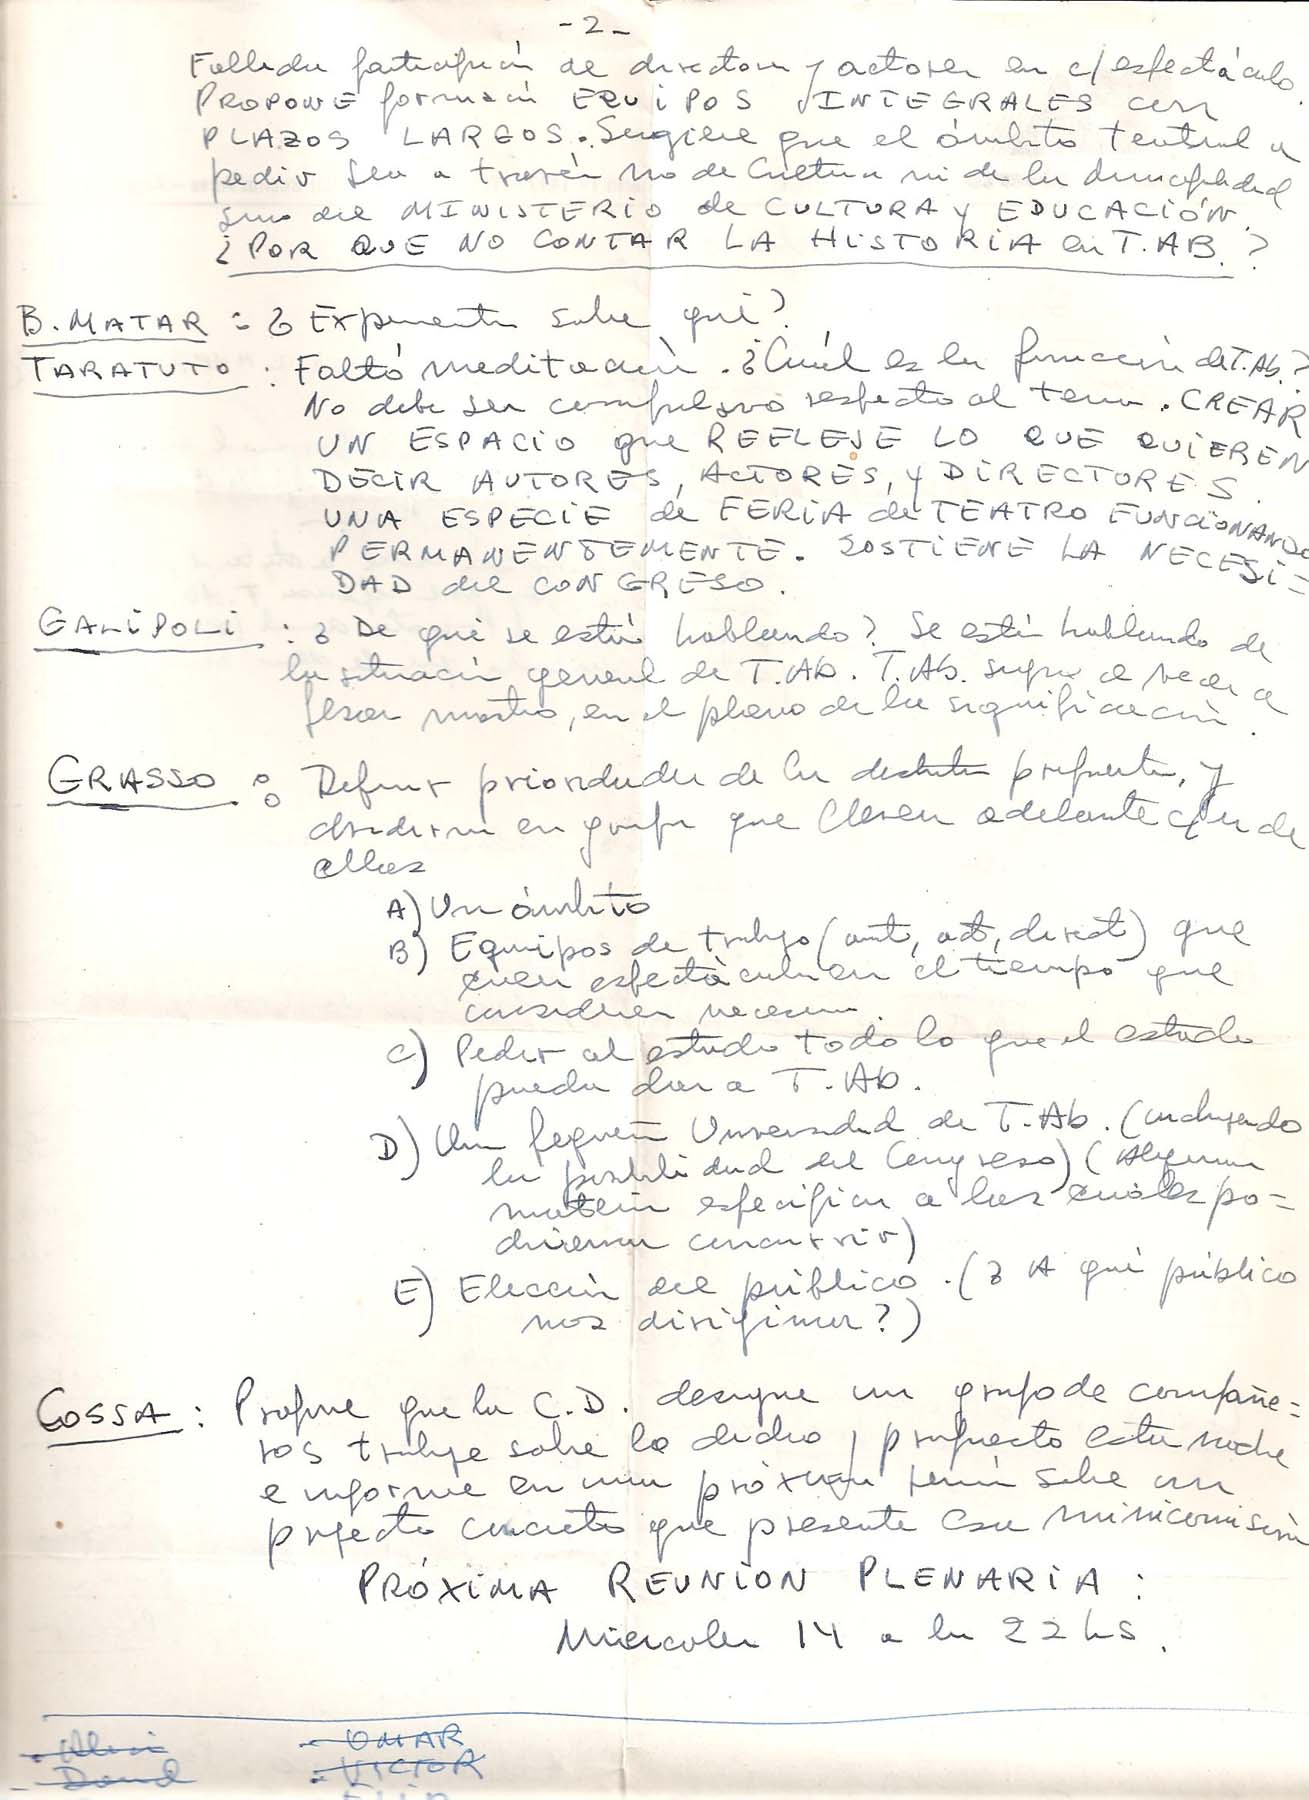 - 2 -
participación de directores y actores en c/ espectáculo.
PROPONE formación EQUIPOS INTEGRALES con
PLAZOS LARGOS. Sugiere que el ámbito teatral a
pedir sea a través no de Cultura ni de la Municipalidad
sino del MINISTERIO de CULTURA y EDUCACIÓN.
¿POR QUE NO CONTAR LA HISTORIA en T.AB.?
B. MATAR : ¿ Experimentar sobre qué?
TARATUTO : Faltó meditación. ¿Cuál es la función de T.Ab.?
No debe ser compulsivo respecto al tema. CREAR
UN ESPACIO que REFLEJE LO QUE QUIEREN
DECIR AUTORES, ACTORES, y DIRECTORES.
UNA ESPECIE de FERIA de TEATRO FUNCIONANDO
PERMANENTEMENTE. SOSTIENE LA NECESI=
DAD del CONGRESO.
GALIPOLI : ¿ De qué se está hablando? Se está hablando de
la situación general de T. Ab. T. Ab. sigue a
pesar nuestro, en el plano de la significación.
GRASSO : Definir prioridades de las distintas propuestas, y
dividirnos en grupos que lleven adelante c/u de
ellas
A) Un ámbito
B) Equipos de trabajo (aut, act, direct) que
creen espectáculos en el tiempo que
consideren necesario.
C) Pedir al estado todo lo que el estado
pueda dar a T. Ab.
D) Una pequeña Universidad de T. Ab. (incluyendo
la posibilidad del Congreso) (Algunas
materias específicas a las cuales po=
driamos concurrir)
E) Elección del público. (¿ A qué público
nos dirigimos?)
COSSA : Propone que la C.D. designe un grupo de compañe=
ros trabaje sobre lo dicho y propuesto esta noche
e informe en una próxima reunión sobre un
proyecto concreto que presente esa minicomisión
PRÓXIMA REUNION PLENARIA :
Miercoles 14 a las 22 hs.
- OMAR
- David - VICTOR